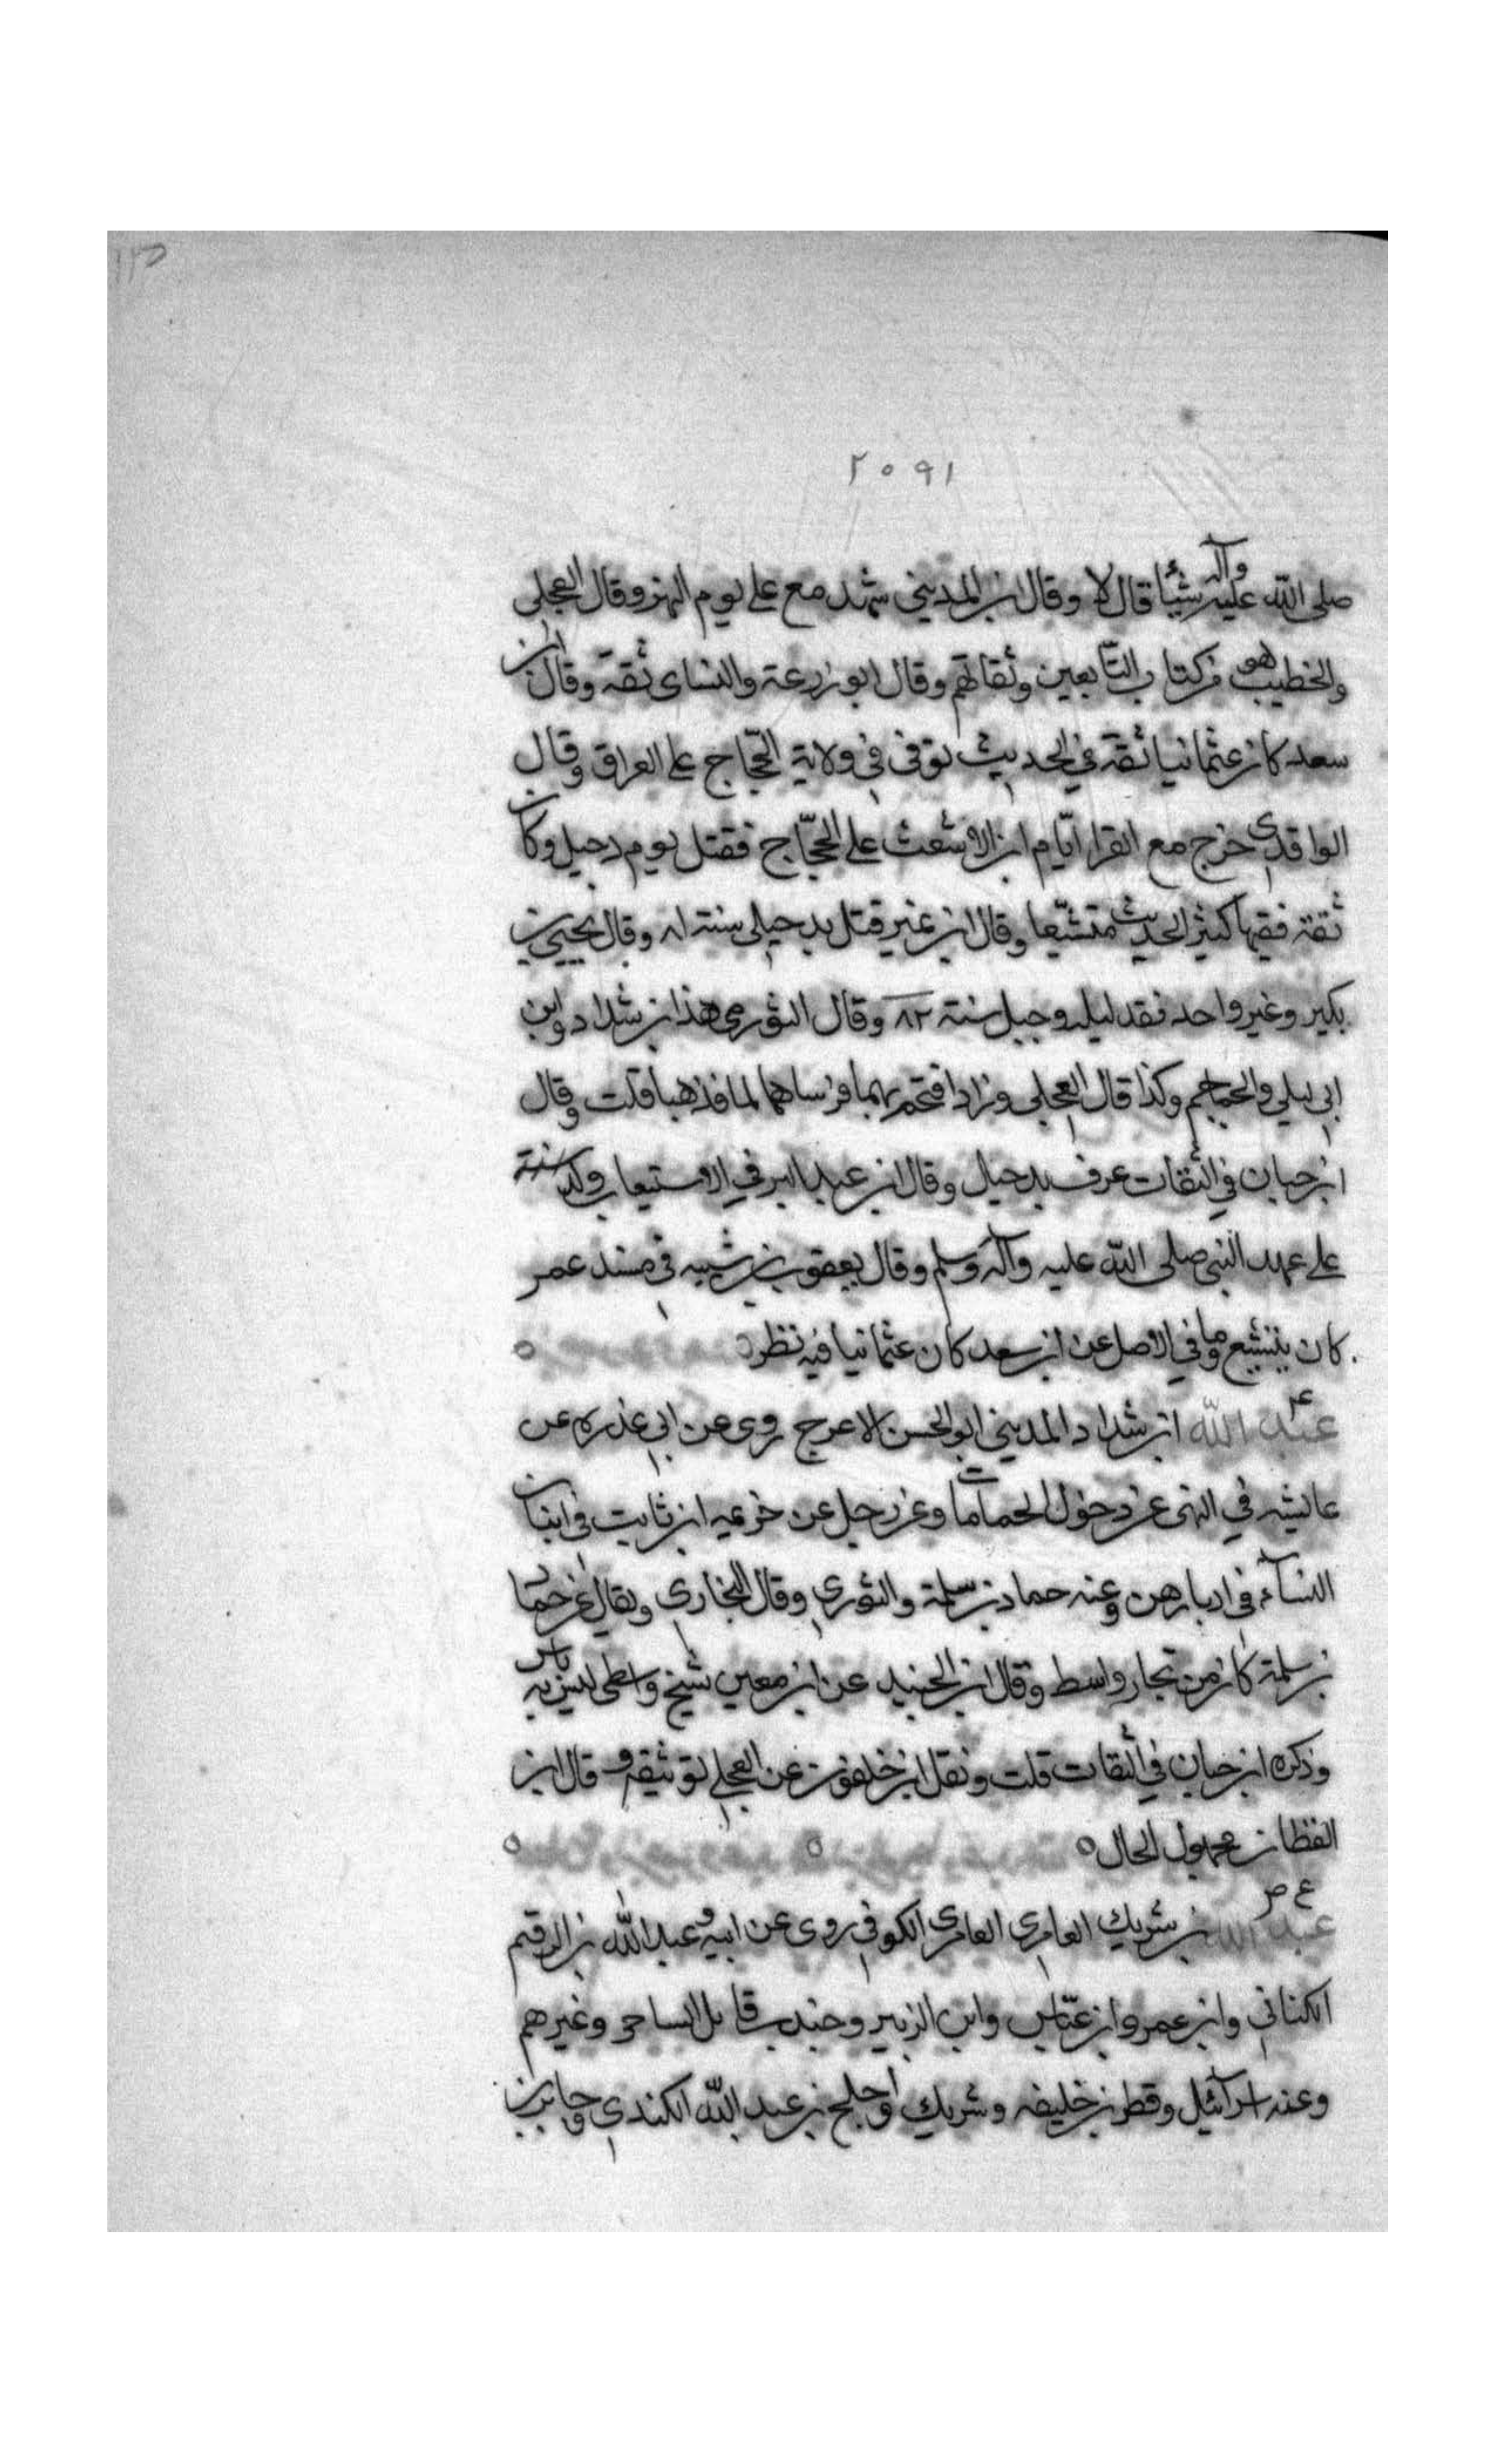 ١٢٥
٢٠٩١
صلى الله عليه وآله شيئا قال لا وقال ابن المديني شهد مع علي يوم النهر وقال العجلي
والخطيب هو من كتاب التابعين وثقاتهم وقال ابو زرعة والنساى ثقة وقال ابن
سعد كان عثمانيا ثقة في الحديث توفى في ولاية الحجاج على العراق وقال
الواقدى خرج مع القرا ايّام ابن الاشعث على الحجّاج فقتل يوم دجيل وكان
ثقة فقيها كثير الحديث متشيّعا وقال ابن نمير قتل بدجيل سنة ٨١ وقال يحيى بن
بكير وغير واحد فقد ليلة دجيل سنة ٨٢ وقال الثورى هذا ابن شداد وابن
ابي ليلي والجماجم وكذا قال العجلى وزاد اقتحم بهما فرساهما الما فذهبا قلت وقال
ابن حبان في الثقات غرق بدجيل وقال ابن عبد البر في الاستيعاب ولد
على عهد النبي صلى الله عليه وآله وسلم وقال يعقوب بن شيبه في مسند عمر
كان يتشيع وما في الاصل عن ابن سعد كان عثمانيا فيه نظر
عبد الله ابن شداد المديني ابو الحسن الاعرج روى عن ابي عذره عن
عايشه في النهى عن دخول الحمامات وعن رجل عن خزيمه ابن ثابت في اتيان
النسآء في ادبارهن وعنه حماد بن سلمة والثورى وقال البخارى ويقال عن حماد
بن سلمة كان من تجار واسط وقال ابن الجنيد عن ابن معين شيخ واسطى ليس به باس
وذكره ابن حبان في الثقات قلت ونقل ابن خلفون عن العجلي توثيقه وقال ابن
القطان مجهول الحال
ع ص
عبد الله بن شريك العامرى العامرى الكوفى روى عن ابيه وعبد الله بن الرقيم
الكناني وابن عمر وابن عبّاس وابن الزبير وجندب قاتل الساحر وغيرهم
وعنه اسرآئيل وفطر بن خليفه وشريك واجلح بن عبد الله الكندي وجابر بن